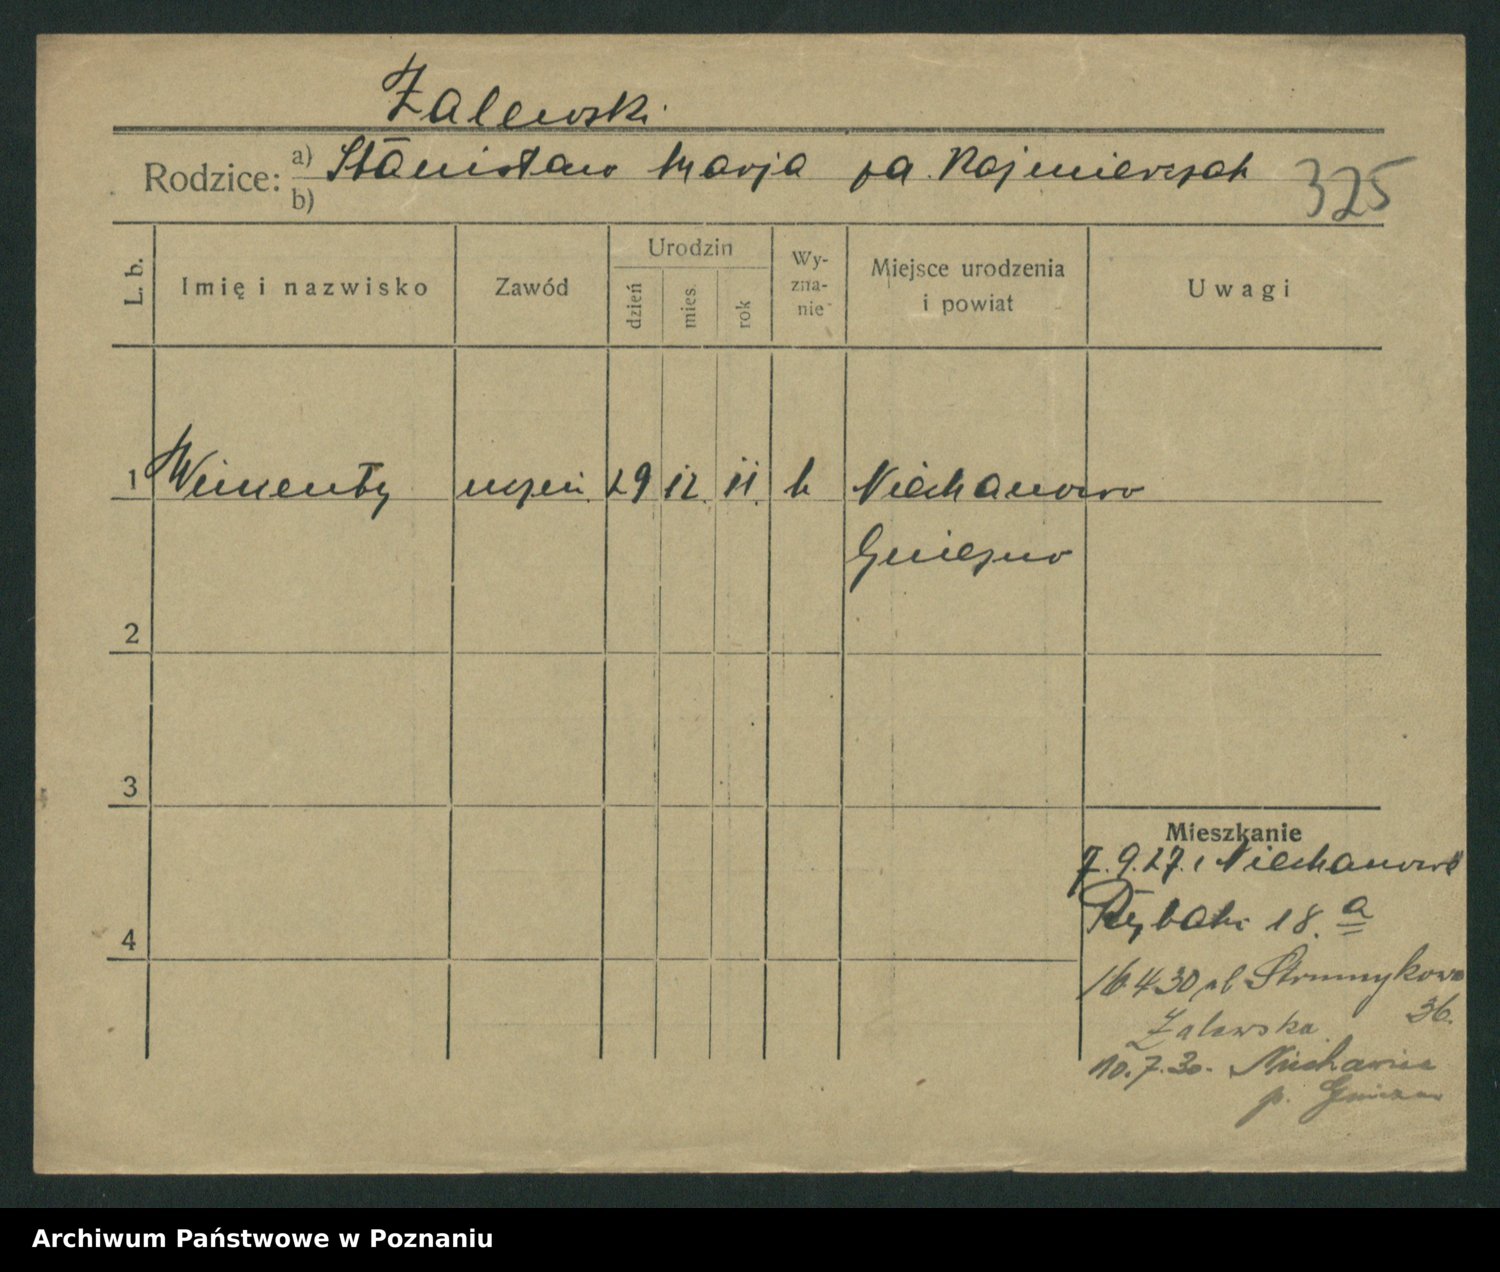 Zalewski
Rodzice: a) Stanisław Marja za. Kazmierczak
b)
325
L. b.
Imię i nazwisko
Zawód
Urodzin
dzień
mies.
rok
Wy-
zna-
nie
Miejsce urodzenia
i powiat
Uwagi
1 Wincenty uczeń 29 12. 11. k Niechanowo
Gniezno
2
3
4
Mieszkanie
7.9.27. Niechanowo
Rybaki 18. a
16 4 30 ul Strumykowa
36.
Zalewska
10.7.30. Niechanowo
p. Gniezno
Archiwum Państwowe w Poznaniu